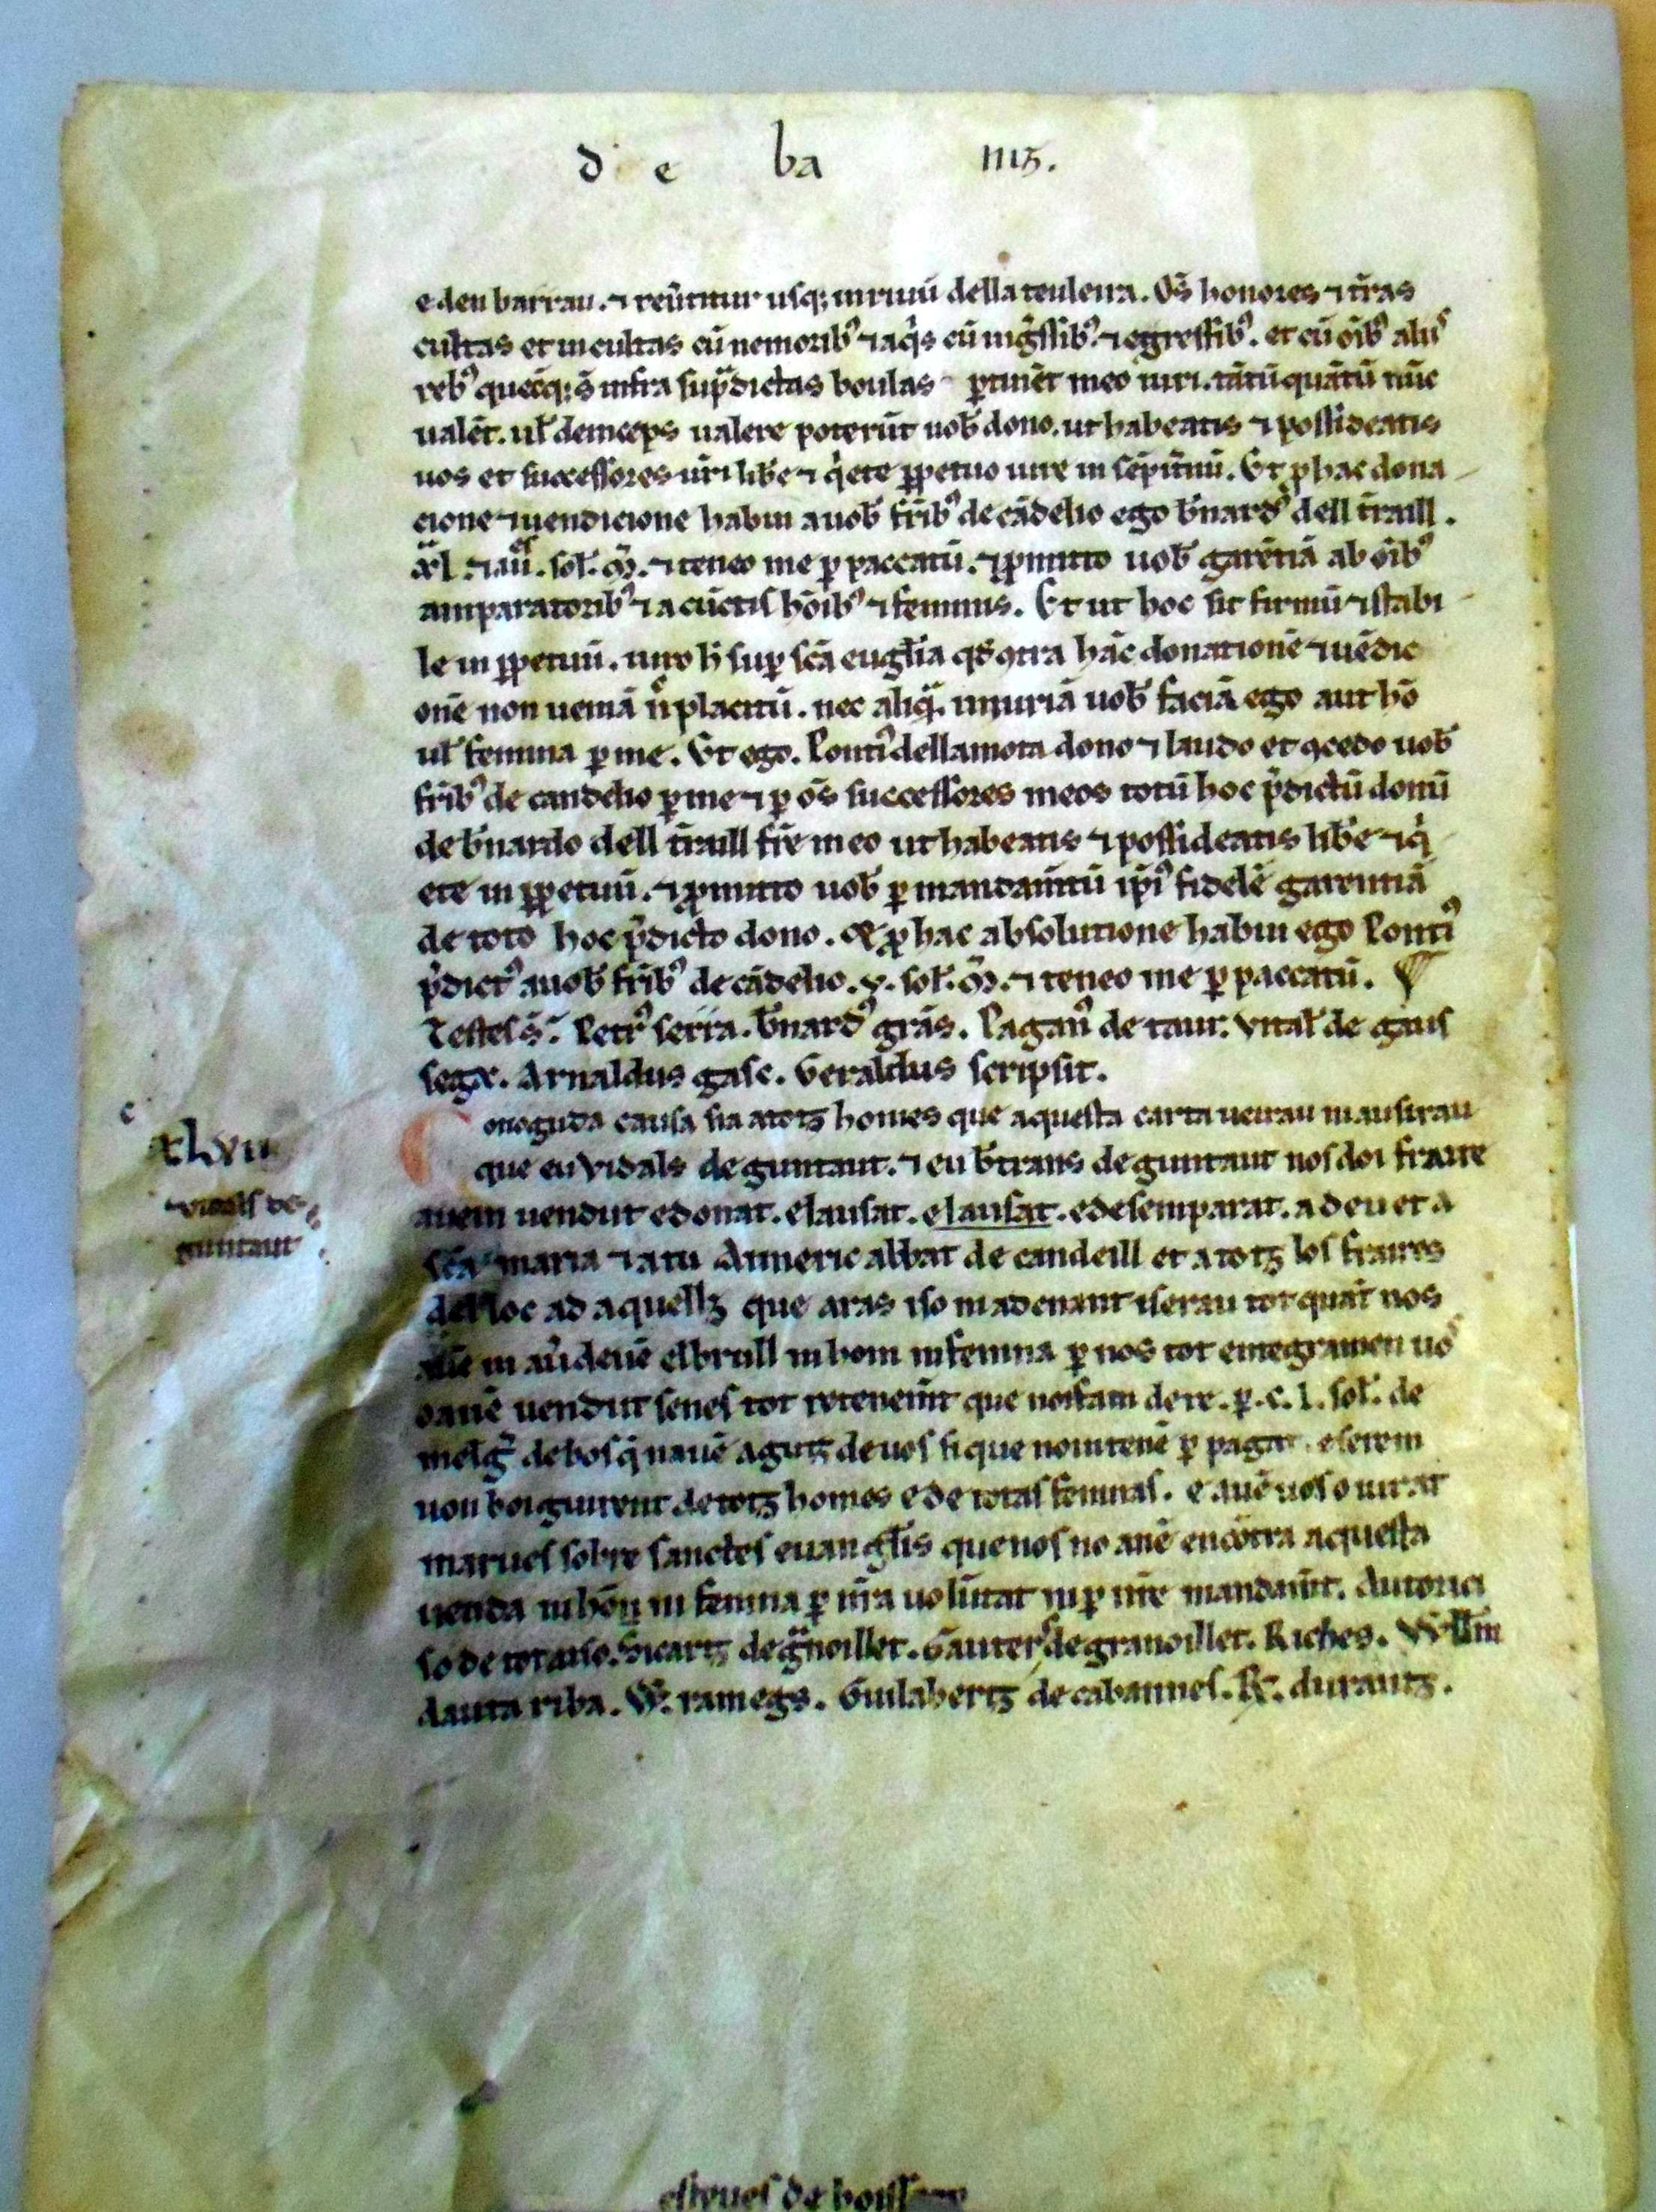 d e ba niz.
e den barrau. ⁊ reũtitur usq; in riuũ della teuleira. Oṡ honores ⁊ t̃ras
cultas et incultas cũ nemoribꝰ ⁊ aq̇s cũ ing̃ssibꝰ. ⁊ egressibꝰ. et cũ õibꝰ aliis
rebꝰ quecq; s̄ infra sup̃dictas boulas ꝑtinẽt meo iuri. tãtũ quãtũ nũc
ualẽt. ul̃ deinceps ualere poterũt uob̃ dono. ut habeatis ⁊ possideatis
uos et successores ur̃i lib̃e ⁊ q̇ete ꝑpetuo iure in sẽpit̃nũ. Et ꝓ hac dona
cione ⁊ uendicione habui a uob̃ fr̃ibꝰ de cãdelio ego b̃nardꝰ dell t̃raill.
sol̃. m̃. ⁊ teneo me ꝑ paccatũ. ⁊ ꝓmitto uob̃ garẽtiã ab õibꝰ
amparatoribꝰ ⁊ a cũctis hõibꝰ ⁊ feminis. Et ut hoc sit firmũ ⁊ stabi
le in ꝑpetuũ. iuro h̃ suꝑ sc̃a eugl̃ia qd̃ ꝯtra hãc donationẽ ⁊ uẽdic
onẽ non ueniã ñ placitũ. nec aliq̃. iniuriã uob̃ faciã ego aut hõ
ul̃ femina ꝑ me. Et ego. Pontiꝰ dellamota dono ⁊ laudo et ꝯcedo uob̃
fr̃ibꝰ de candelio ꝑ me ⁊ ꝑ õs successores meos totũ hoc p̃dictũ donũ
de b̃nardo dell t̃raill fr̃e meo ut habeatis ⁊ possideatis lib̃e ⁊ q̇
ete in ꝑpetuũ. ⁊ ꝓmitto uob̃ ꝑ mandam̃tũ ip̃iꝰ fidelẽ garentiã
de toto hoc p̃dicto dono. & ꝓ hac absolutione habui ego Pontiꝰ
p̃dictꝰ a uob̃ fr̃ibꝰ de cãdelio. v. sol̃. m̃. ⁊ teneo me ꝑ paccatũ.
Testes s̃. Petrꝰ serra. b̃nardꝰ gras. Paganꝰ de taur. vital̃ de gaus
segr. Arnaldus gasc. Geraldus scripsit.
Conoguda causa sia a totz homes que aquesta carta ueirau ni ausirau
xlvii
que eu vidals de guntaut. ⁊ eu b̃trans de guntaut nos doi fraire
vitals de
auem uendut e donat. e lausat. e lausat. e desemparat. a deu et a
guntaut
sc̃a maria ⁊ a tu Aimeric abbat de candeill et a totz los fraires
del loc ad aquellz que aras i so ni adenant i serau tot quãt nos
auẽ ni auer deuẽ el bruil ni hom ni femna ꝑ nos tot entegramen uos
o auẽ uendut senes tot retenem̃t que no i fam de re. ꝑ. c. l. sol̃. de
melg̃ de bos q̇ nauẽ agutz de uos si que no i tenẽ ꝑ pagat. e serem
uon boi guirent de totz homes e de totas femnas. e auẽ uos o iurat
marues sobre sanctes euangl̃is que nos no anẽ encõtra aquesta
uenda ni hõm ni femna ꝑ nr̃a uolũtat ni ꝑ nr̃e mandam̃t. Autorici
so de tot aiso. Sicartz de g̃noillet. Gauters de granoillet. Riches. Willm̃
dauta riba. W. ramegs. Guilabertz de cabannes. R. durantz.
esteues de boiss